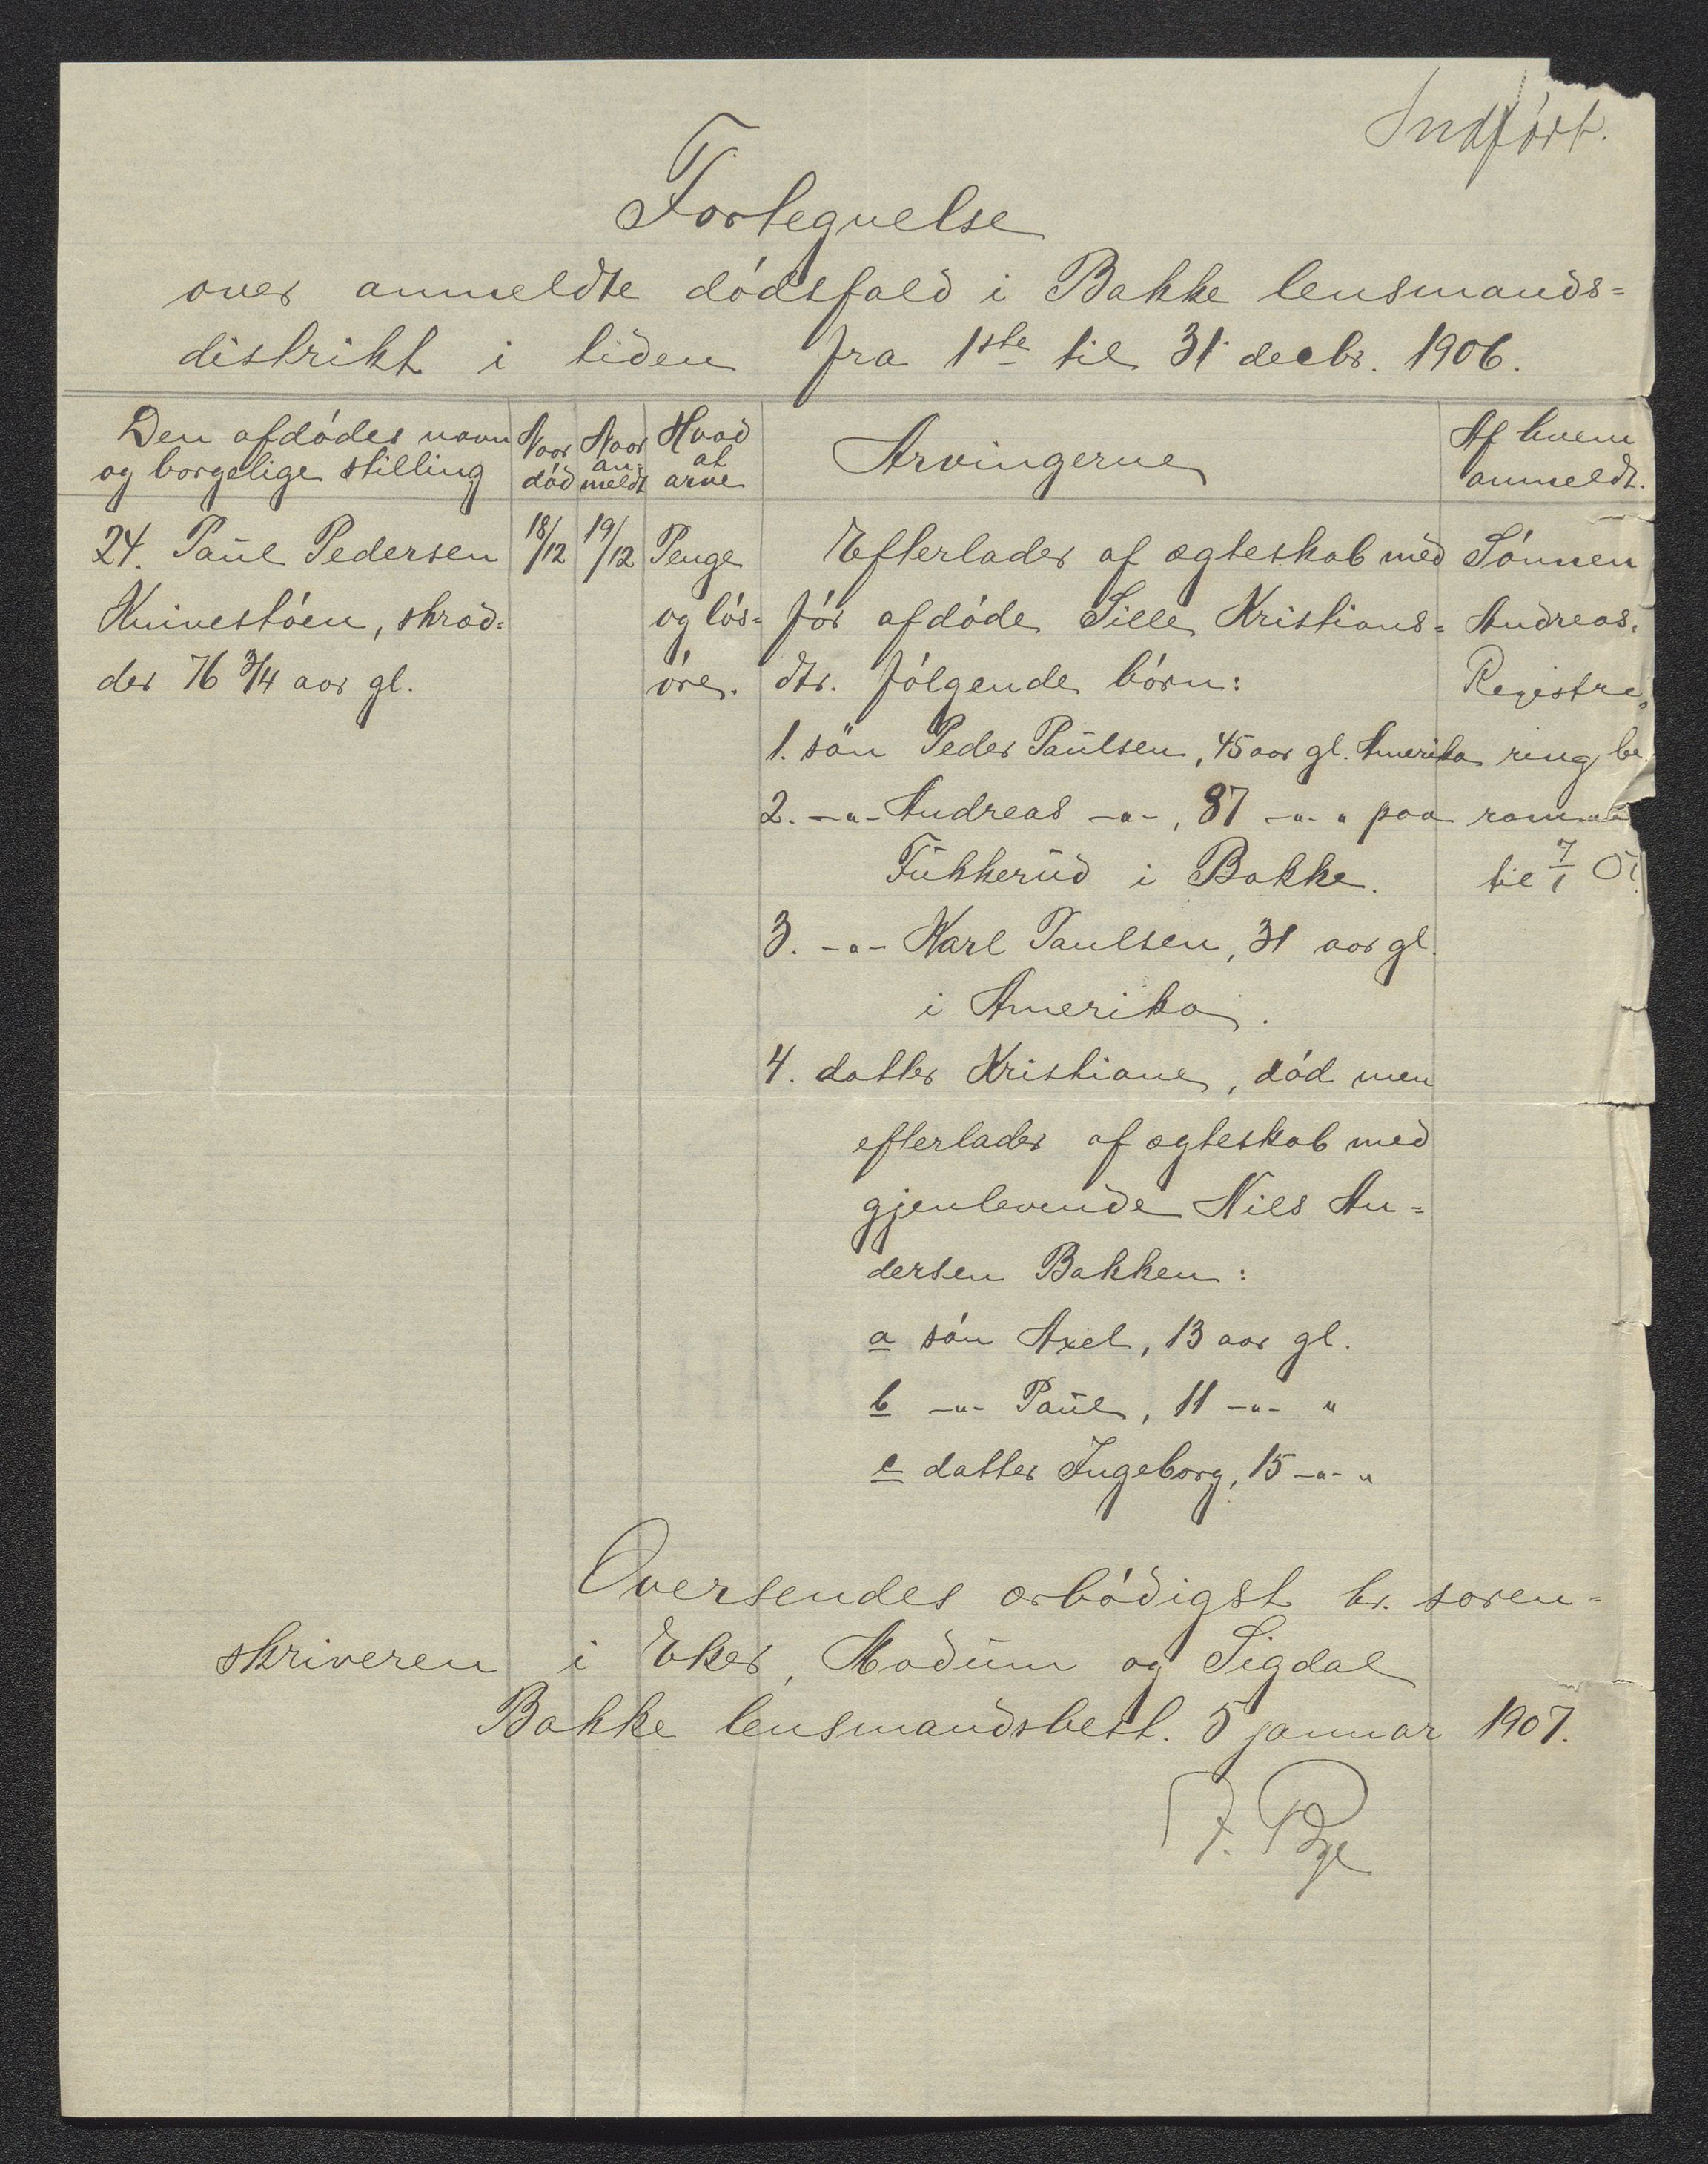 Indført.
Fortegnelse
over anmeldte dødsfald i Bakke lensmands=
distrikt i tiden fra 1ste til 31 decbr. 1906.
Den afdødes navn og borgelige stilling
Naar død
Naar an- meldt
Hvad at arve
Arvingerne
Af hvem anmeldt.
24. Paul Pedersen 18/12 19/12 Penge Efterlader af ægteskab med Sønnen
Knivestøen, skræd= og løs= før afdøde Sille Kristians= Andreas.
der 76 3/4 aar gl. øre. dtr. følgende børn: Registre=
1. søn Peder Paulsen, 45 aar gl. Amerika ring be
2. -"- Andreas -"-, 37 -"- " paa
Fukkerud i Bakke. til 7/1
3. -"- Karl Paulsen, 31 aar gl.
i Amerika.
4. datter Kristiane, død men
efterlader af ægteskab med
gjenlevende Nils An=
dersen Bakken:
a søn Axel, 13 aar gl.
b -"- Paul, 11 -"- "
c datter Ingeborg, 15 -"- "
Oversendes ærbødigst hr. soren=
skriveren i Eker, Modum og Sigdal
Bakke lensmandsbest. 5 januar 1907.
F. Bye